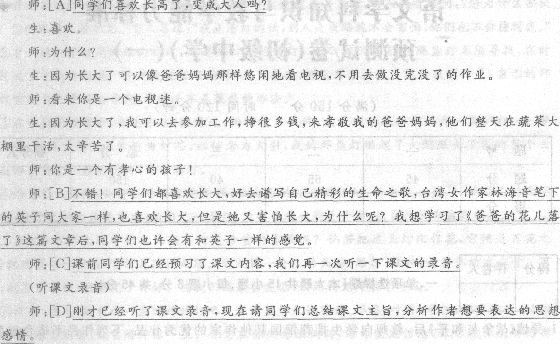 师:[A]同学们喜欢长高了,变成大人吗?
生:喜欢。
师:为什么?
生:因为长大了可以像爸爸妈妈那样悠闲地看电视,不用去做没完没了的作业。
师:看来你是一个电视迷。
生:因为长大了,我可以去参加工作,挣很多钱,来孝敬我的爸爸妈妈,他们整天在蔬菜大
棚里干活,太辛苦了。
师:你是一个有孝心的孩子!
师:[B]不错!同学们都喜欢长大,好去谱写自己精彩的生命之歌,台湾女作家林海音笔下
的英子同大家一样,也喜欢长大,但是她又害怕长大,为什么呢?我想学习了《爸爸的花儿落
了》这篇文章后,同学们也许会有和英子一样的感觉。
师:[C]课前同学们已经预习了课文内容,我们再一次听一下课文的录音。
(听课文录音)
师:[D]刚才已经听了课文录音,现在请同学们总结课文主旨,分析作者想要表达的思想
感情。